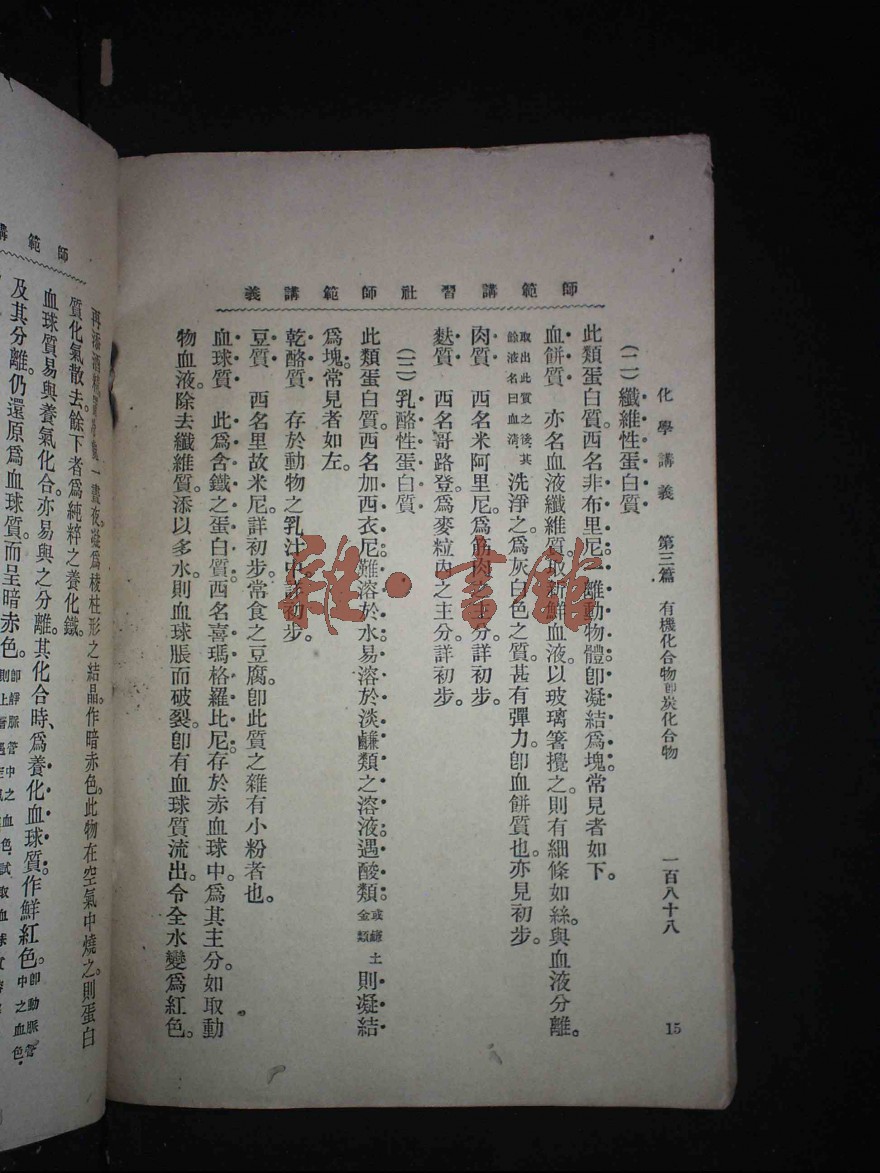 師範講習社師範講義
化學講義 第三篇 有機化合物即炭化合物 一百八十八 15
(二)纖維性蛋白質
此類蛋白質。西名非布里尼。離動物體卽凝結爲塊。常見者如下。
血餅質 亦名血液纖維質。取新鮮血液。以玻璃箸攪之。則有細條如絲。與血液分離。
取出此質之後、其餘液名曰血清、洗淨之。爲灰白色之質。甚有彈力。卽血餅質也。亦見初步。
肉質 西名米阿里尼。爲筋肉之主分。詳初步。
麩質 西名哥路登。爲麥粒內之主分。詳初步。
(三)乳酪性蛋白質
此類蛋白質。西名加西衣尼。難溶於水。易溶於淡鹻類之溶液。遇酸類。或鹻土金類則凝結
爲塊。常見者如左。
乾酪質 存於動物之乳汁中。詳初步。
豆質 西名里故米尼。詳初步。常食之豆腐。卽此質之雜有小粉者也。
血球質 此爲含鐵之蛋白質。西名喜瑪格羅比尼。存於赤血球中。爲其主分。如取動
物血液。除去纖維質。添以多水。則血球脹而破裂。卽有血球質流出。令全水變爲紅色。
師範講
一晝夜。凝爲棱柱形之結晶。作暗赤色。此物在空氣中燒之。則蛋白
質化氣散去。餘下者爲純粹之養化鐵。
血球質易與養氣化合。亦易與之分離。其化合時、爲養化血球質。作鮮紅色。卽動脈管中之血色・
及其分離。仍還原爲血球質。而呈暗赤色。卽靜脈管中之血色、試取血球
雜·書館